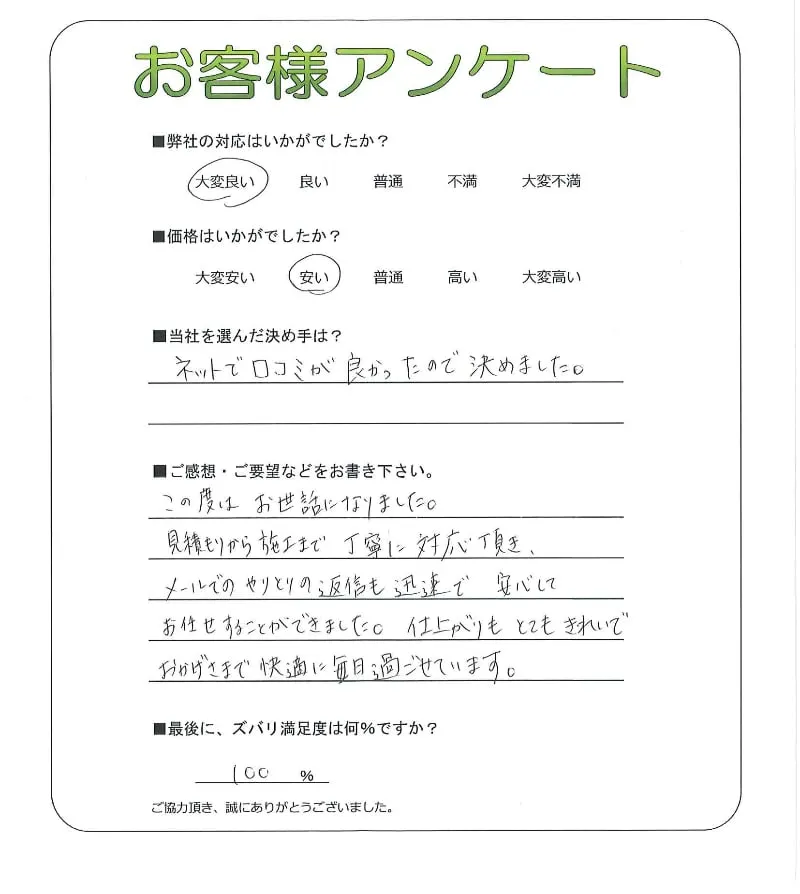 お客様アンケート
■弊社の対応はいかがでしたか？
大変良い 良い 普通 不満 大変不満
■価格はいかがでしたか？
大変安い 安い 普通 高い 大変高い
■当社を選んだ決め手は？
ネットで口コミが良かったので決めました。
■ご感想・ご要望などをお書き下さい。
この度はお世話になりました。
見積もりから施工まで丁寧に対応頂き、
メールでのやりとりの返信も迅速で 安心して
お任せすることができました。仕上がりもとてもきれいで
おかげさまで快適に毎日過ごせています。
■最後に、ズバリ満足度は何%ですか？
100 %
ご協力頂き、誠にありがとうございました。